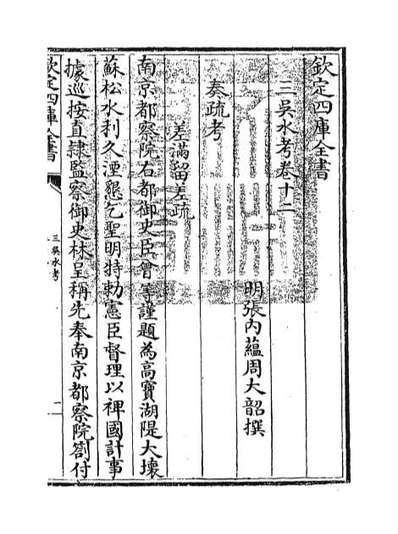 欽定四庫全書
三吳水考卷十二
明張內蘊周大韶撰
奏疏考
差滿留差疏
南京都察院右都御史臣曾等謹題為高寶湖隄大壞
蘇松水利久湮懇乞聖明特勅憲臣督理以裨國計事
據巡按直隸監察御史林呈稱先奉南京都察院劄付
欽定四庫全書
三吳水考